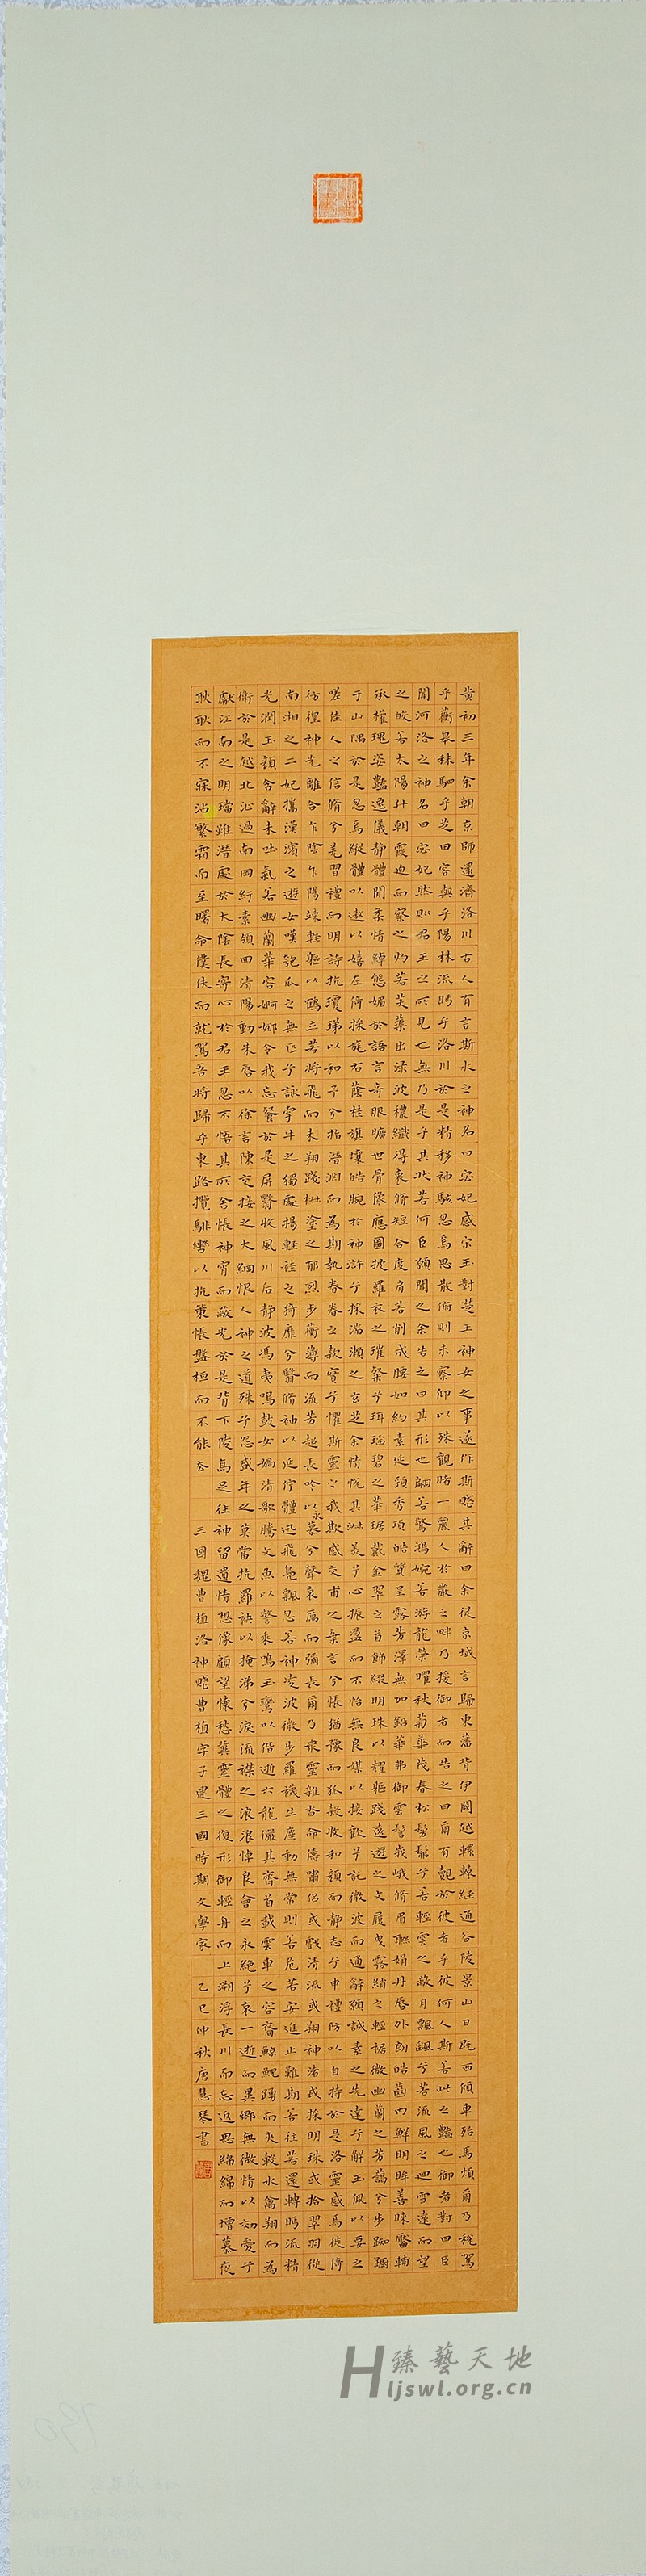 黄初三年余朝京師還濟洛川古人有言斯水之神名曰宓妃感宋玉對楚王神女之事遂作斯賦其辭曰余從京域言歸東藩背伊闕越轘轅經通谷陵景山日既西傾車殆馬煩爾乃税駕
乎蘅皋秣駟乎芝田容與乎陽林流眄乎洛川於是精移神駭忽焉思散俯則未察仰以殊觀睹一麗人於巖之畔乃援御者而告之曰爾有覿於彼者乎彼何人斯若此之豔也御者對曰臣
聞河洛之神名曰宓妃然則君王之所見也無乃是乎其狀若何臣願聞之余告之曰其形也翩若驚鴻婉若游龍榮曜秋菊華茂春松髣髴兮若輕雲之蔽月飄飖兮若流風之迴雪遠而望
之皎若太陽升朝霞迫而察之灼若芙蕖出淥波穠纖得衷脩短合度肩若削成腰如約素延頸秀項皓質呈露芳澤無加鉛華弗御雲髻峩峨脩眉聯娟丹脣外朗皓齒内鮮明眸善睞靨輔
承權瓌姿豔逸儀静體閒柔情綽態媚於語言奇服曠世骨像應圖披羅衣之璀粲兮珥瑶碧之華琚戴金翠之首飾綴明珠以耀軀踐遠遊之文履曳霧綃之輕裾微幽蘭之芳藹兮步踟躕
于山隅於是忽焉縱體以遨以嬉左倚採旄右蔭桂旗壤皓腕於神滸兮採湍瀬之玄芝余情悦其淑美兮心振蕩而不怡無良媒以接歡兮託微波而通辭願誠素之先達兮解玉佩以要之
嗟佳人之信脩兮羌習禮而明詩抗瓊珶以和予兮指潛淵而為期執眷眷之款實兮懼斯靈之我欺感交甫之棄言兮悵猶豫而狐疑收和顔而静志兮申禮防以自持於是洛靈感焉徙倚
彷徨神光離合乍陰乍陽竦輕軀以鶴立若將飛而未翔踐椒塗之郁烈步蘅薄而流芳超長吟以永慕兮聲哀厲而彌長爾乃衆靈雜沓命儔嘯侣或戲清流或翔神渚或採明珠或拾翠羽從
南湘之二妃攜漢濱之遊女嘆匏瓜之無匹兮詠牽牛之獨處揚輕袿之猗靡兮翳脩袖以延佇體迅飛鳧飄忽若神凌波微步羅襪生塵動無常則若危若安進止難期若往若還轉眄流精
光潤玉顔含辭未吐氣若幽蘭華容婀娜令我忘餐於是屏翳收風川后静波馮夷鳴鼓女媧清歌騰文魚以警乘鳴玉鸞以偕逝六龍儼其齊首載雲車之容裔鯨鯢踴而夾轂水禽翔而為
衛於是越北沚過南岡紆素領回清陽動朱脣以徐言陳交接之大綱恨人神之道殊兮怨盛年之莫當抗羅袂以掩涕兮淚流襟之浪浪悼良會之永絶兮哀一逝而異鄉無微情以効愛兮
獻江南之明璫雖潛處於太陰長寄心於君王忽不悟其所舍悵神宵而蔽光於是背下陵高足往神留遺情想像顧望懷愁冀靈體之復形御輕舟而上溯浮長川而忘返思綿綿而增慕夜
耿耿而不寐沾繁霜而至曙命僕夫而就駕吾將歸乎東路攬騑轡以抗策悵盤桓而不能去 三國魏曹植洛神賦曹植字子建三國時期文學家 乙巳仲秋唐慧琴書
臻藝天地
Hljswl.org.cn
790